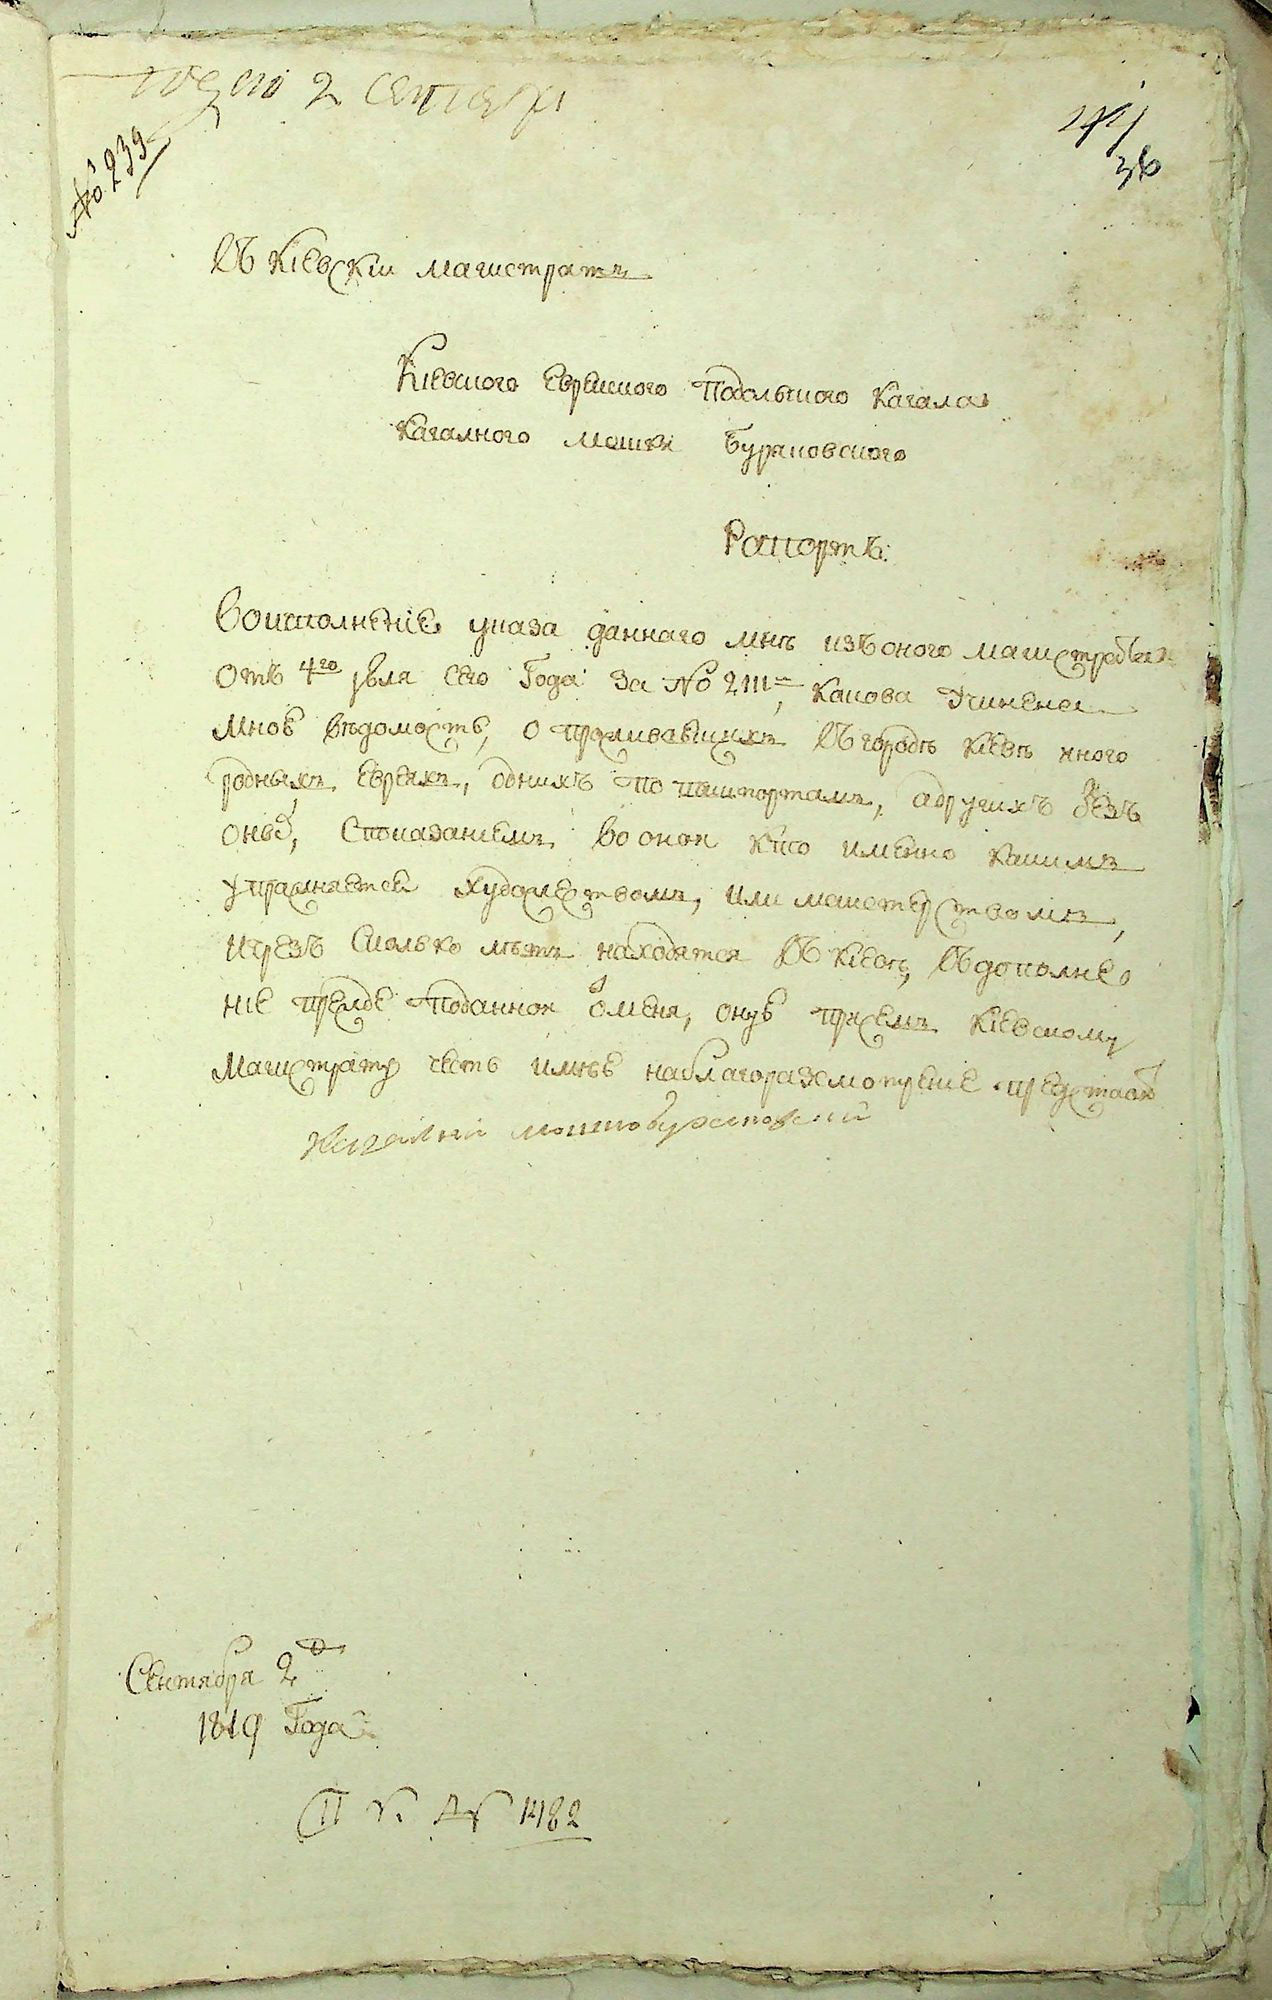 2 сентябр
№ 239
36
Въ Кіевскіи магистратъ
Кіевского Еврейского Подольского Кагала
Кагалного Мошки Буряковского
Рапортъ
Воисполненіе указа данного мнѣ изъ оного магистрата
отъ 4го Іюля сего Года за № 2111м, какова Учинена
мною вѣдомость, о проживавшихъ Въ городѣ Кіевѣ иного
родныхъ Евреяхъ, однихъ по пашпортамъ, адругихъ безъ
оных, Споказаніемъ во оной кто именно какимъ
упражняется художествомъ, или мастерствомъ,
ичрезъ Сколько лѣтъ находятся Въ Кіевѣ, Въдополне
ніе прежде поданной о меня, оную присемъ Кіевскому
Магистрату честь имѣю наблагоразсмотреніе представ
Кагалній мошко буряковскій
Сентября 2 д
1819 Года
1482